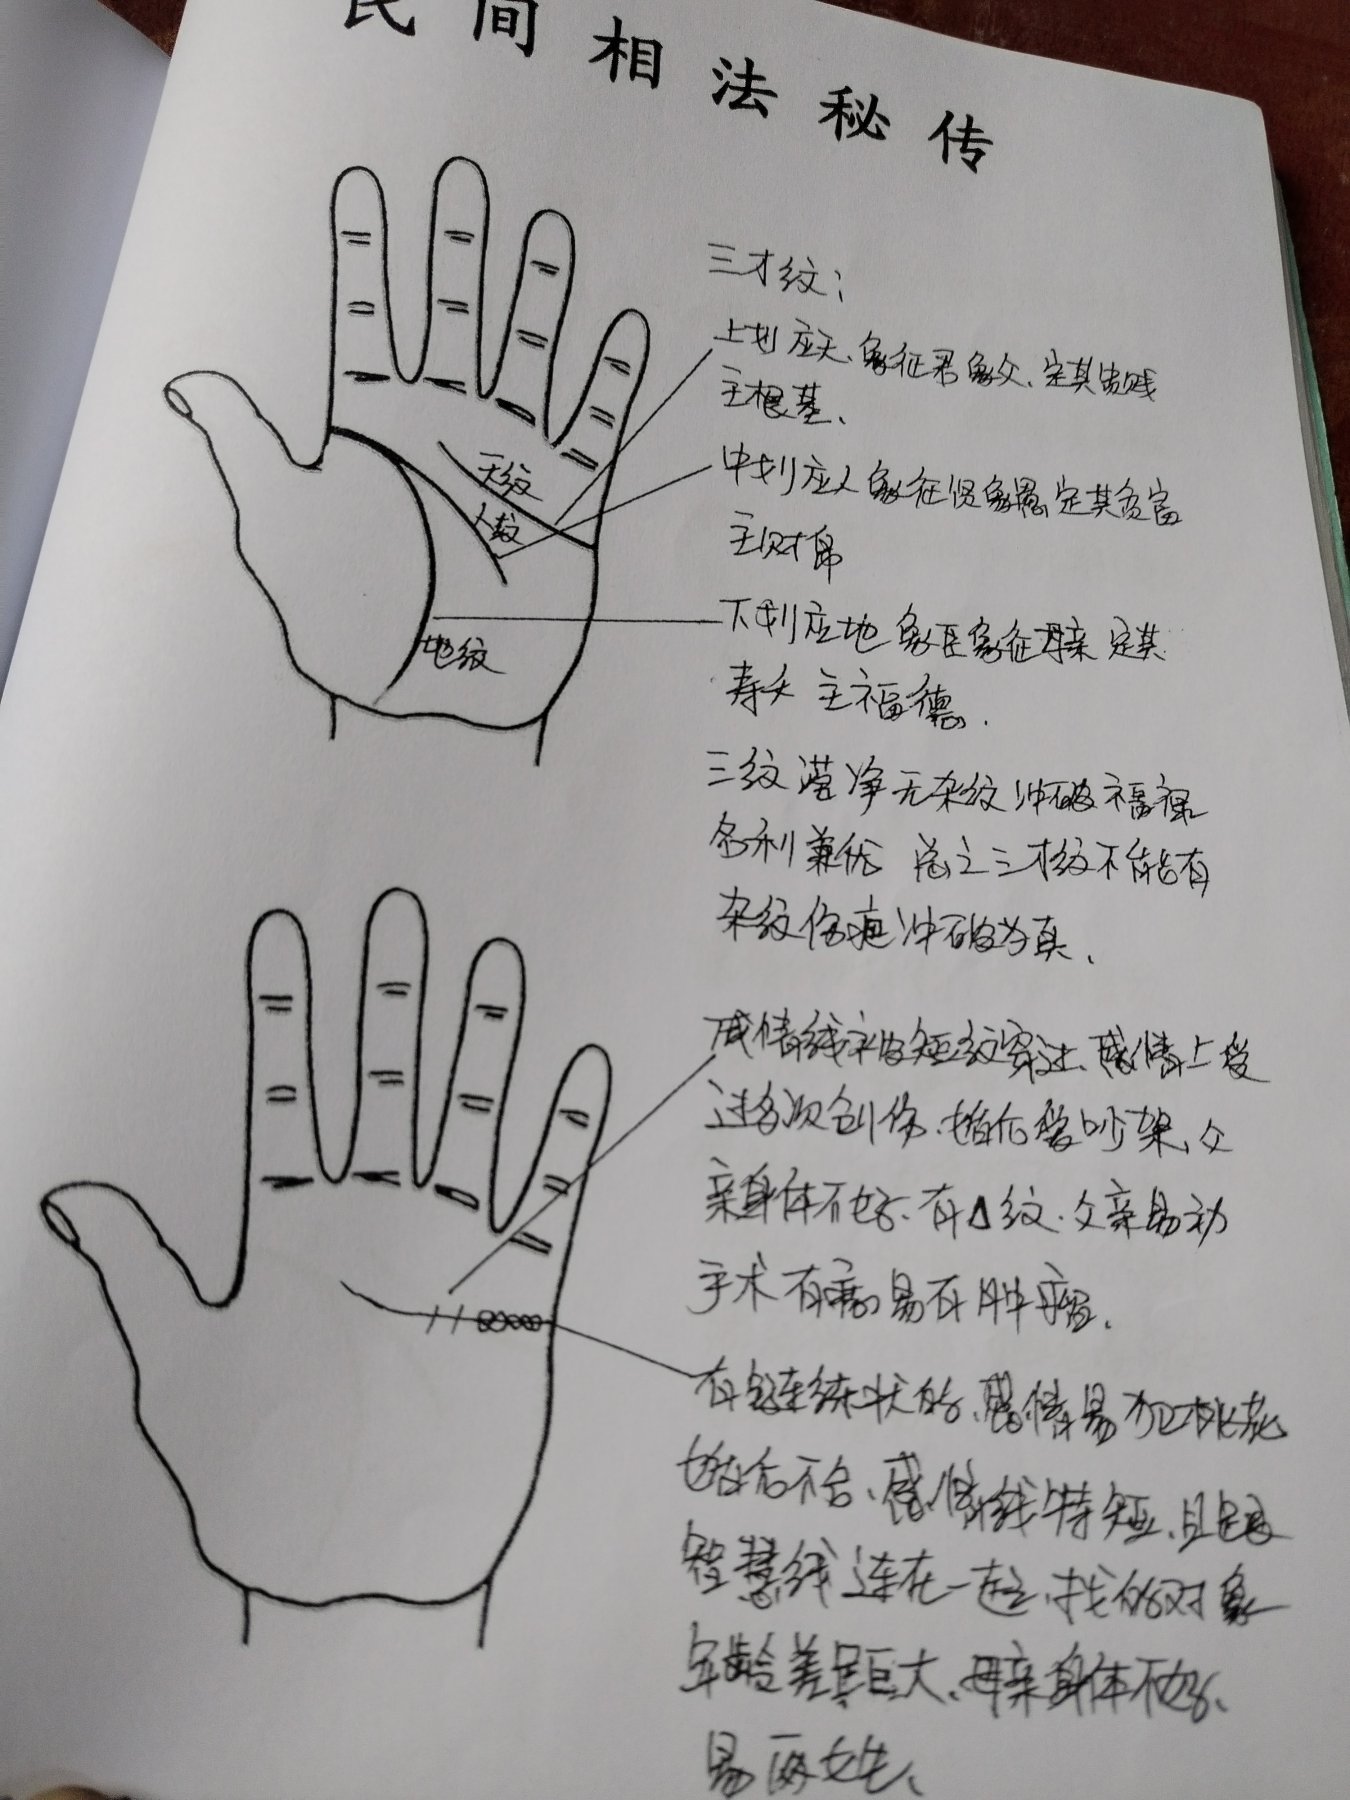 民间相法秘传
三才纹：
上划应天、象征君象父、定其贵贱
主根基、
中划应人象征贤象愚定其贫富
主财帛
下划应地象臣象征母亲定其
寿夭 主福德、
三纹莹净无杂纹冲破福禄
名利兼优 总之三才纹不能有
杂纹伤疤冲破为真、
天纹
人纹
地纹
感情线被短纹穿过、感情上受
过多次创伤、婚后爱吵架、父
亲身体不好、有△纹、父亲易动
手术有病易有肿瘤、
有链状的、感情易犯桃花
婚后不合、感情线特短、且跟
智慧线连在一起、找的对象
年龄差异巨大、母亲身体不好、
易